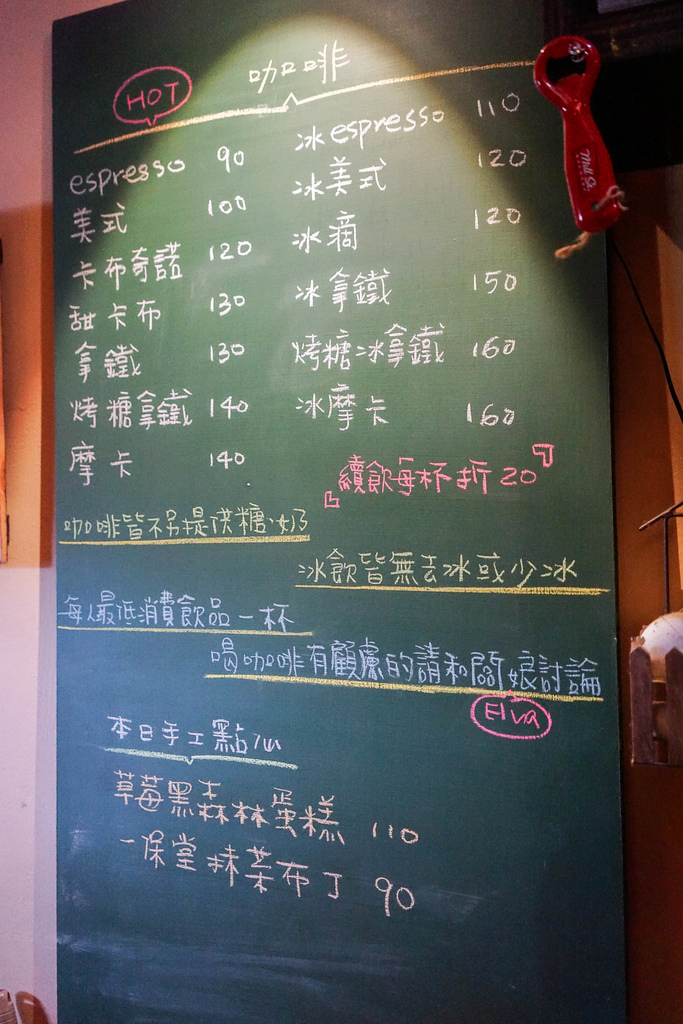 咖啡
HOT
espresso 90
美式 100
卡布奇諾 120
甜卡布 130
拿鐵 130
烤糖拿鐵 140
摩卡 140
冰espresso 110
冰美式 120
冰滴 120
冰拿鐵 150
烤糖冰拿鐵 160
冰摩卡 160
『續飲每杯折20』
咖啡皆不另提供糖、奶
冰飲皆無去冰或少冰
每人最低消費飲品一杯
喝咖啡有顧慮的請和闆娘討論
Elva
本日手工點心
草莓黑森林蛋糕 110
一保堂抹茶布丁 90